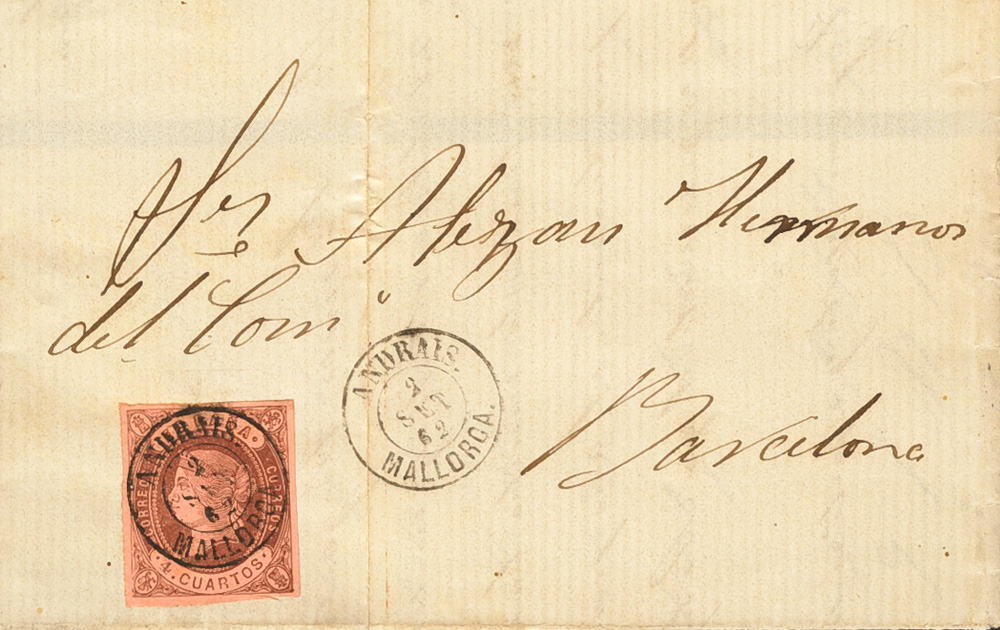 Sres Alezan Hermanos
del Comº
Barcelona
ANDRAIS.
2
SET
62
MALLORCA.
ANDRAIS.
MALLORCA
CORREOS
4. CUARTOS